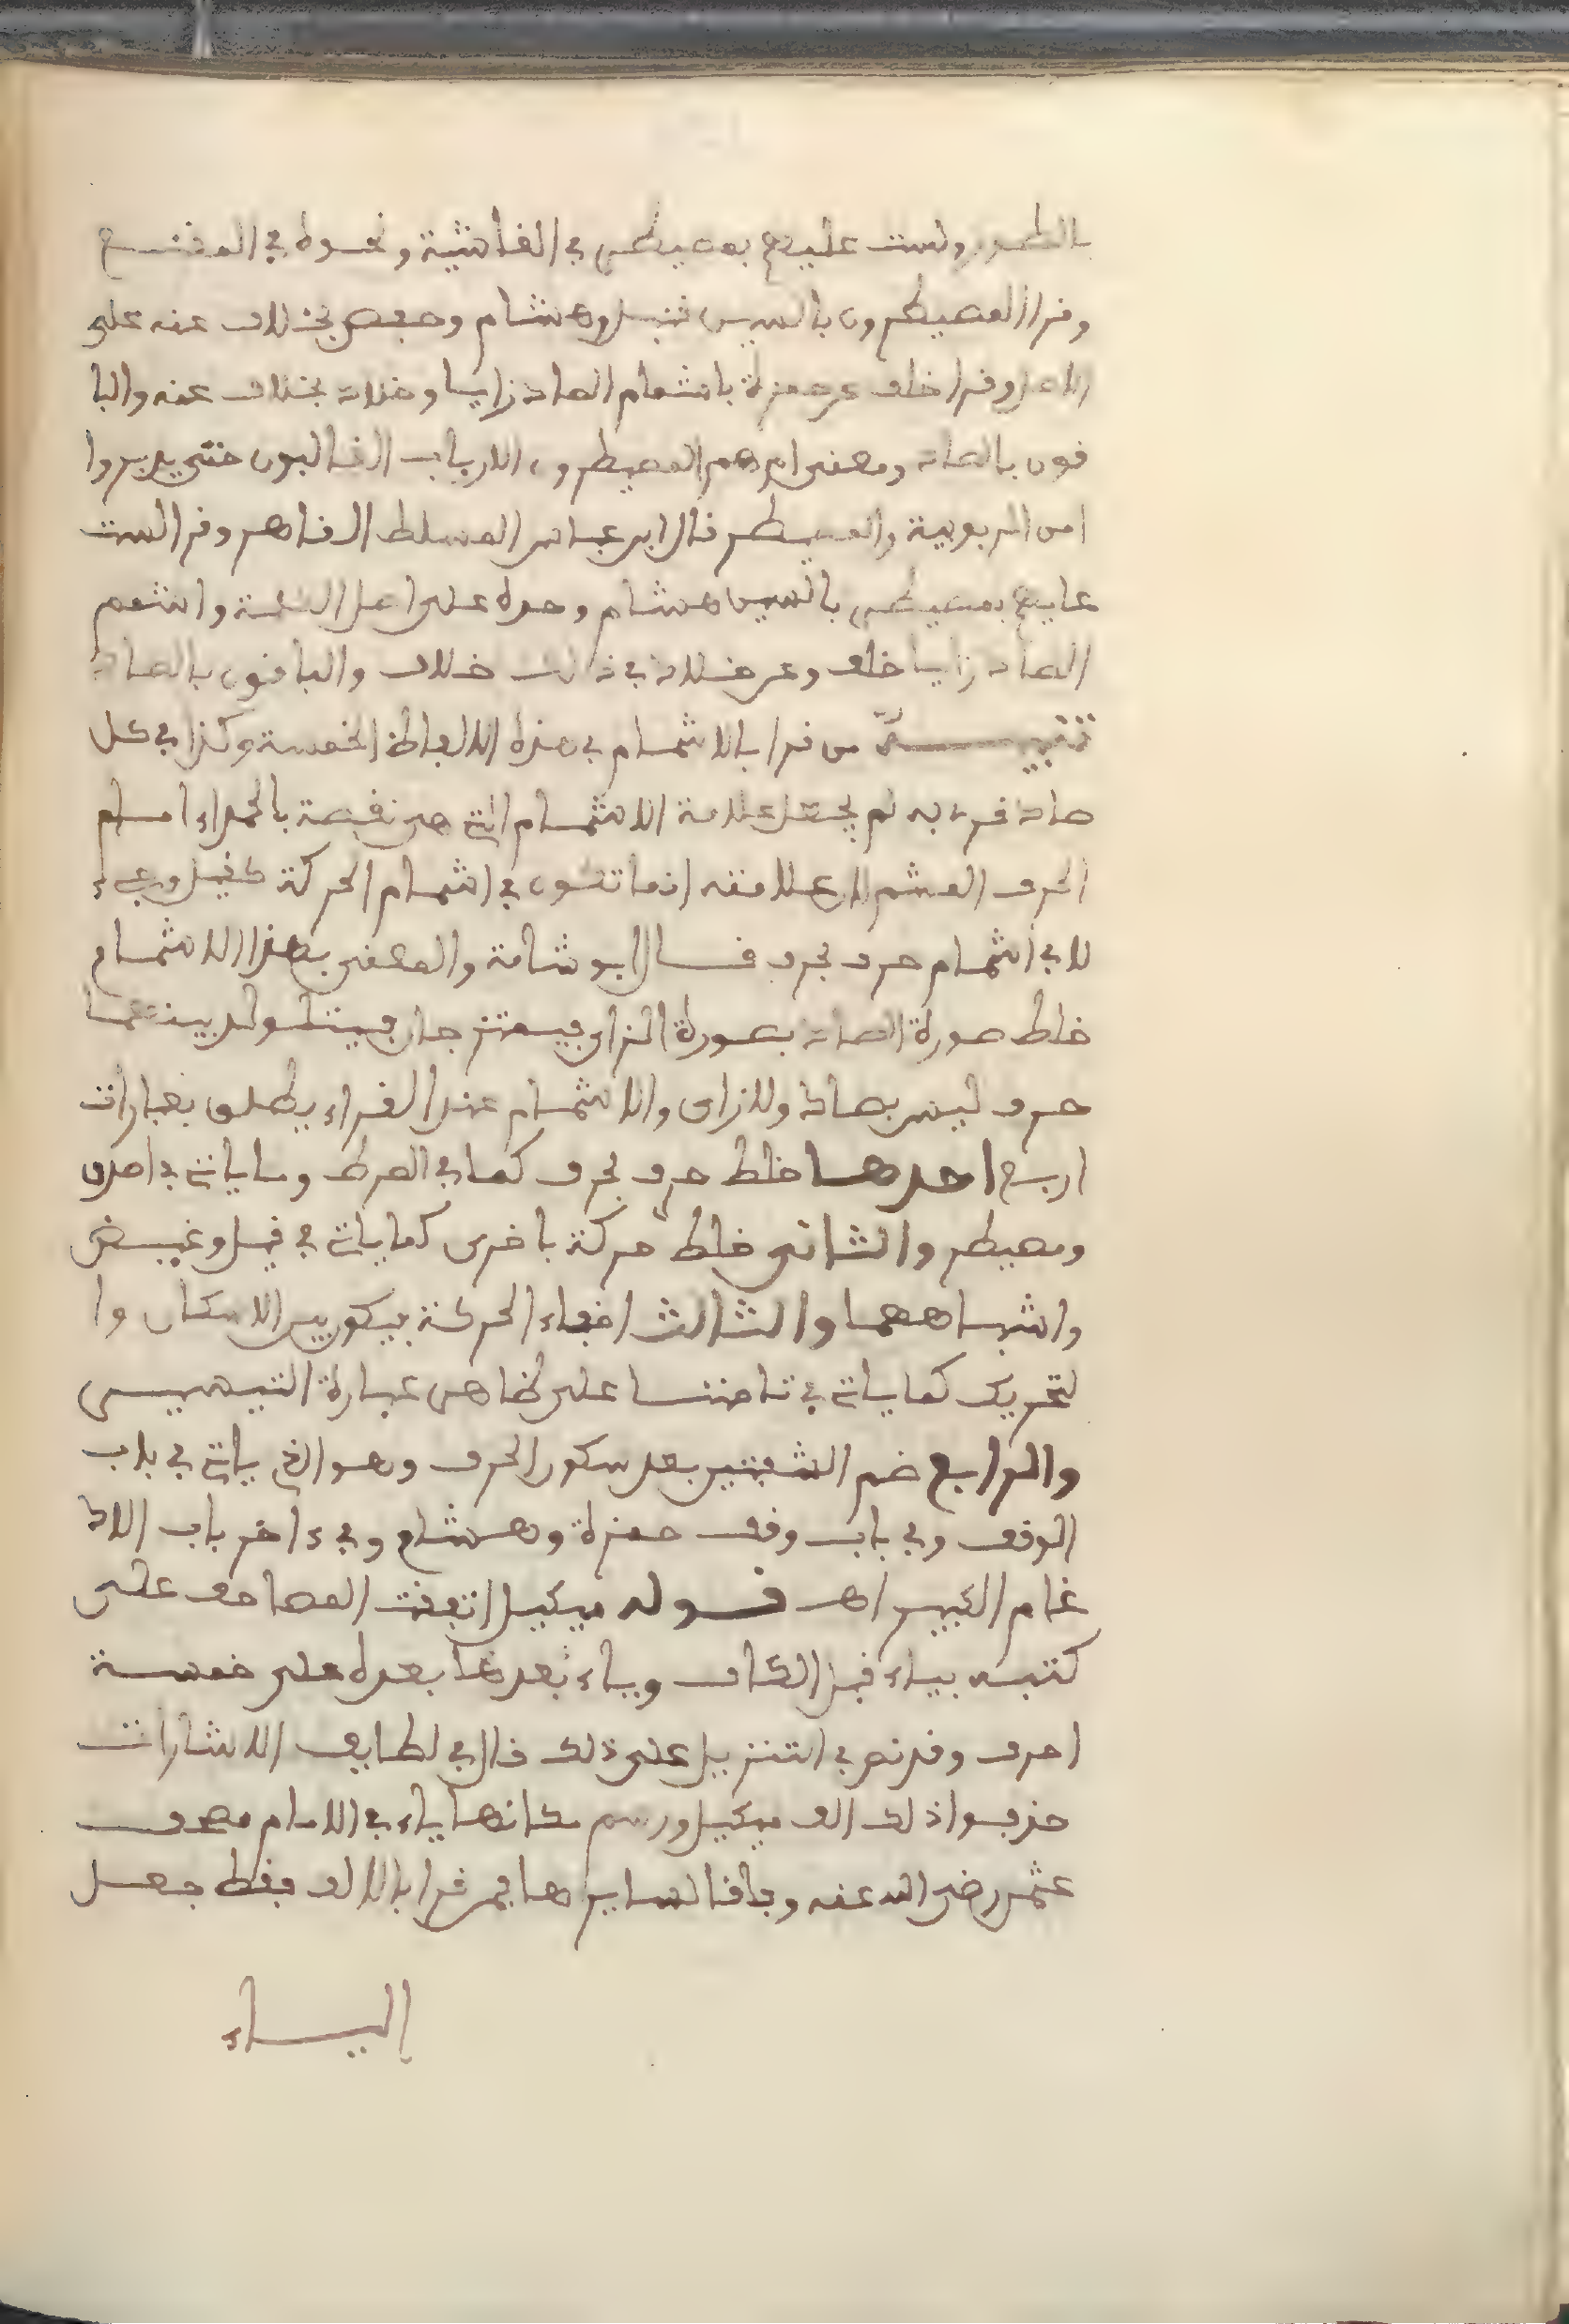 بالطور ولست عليهم بمصيطر في الغاشية ونحوه في المقنع
وقرا المصيطرون بالسين قنبل وهشام وحفص بخلاف عنه على
الاصل وقرا خلف عن حمزة باشمام الصاد زايا وخلاد بخلاف عنه والبا
قون بالصاد ومعنى ام هم المصيطرون الارباب الغالبون حتى يدبروا
امر الربوبية والمصيطر قال ابن عباس المسلط القاهر وقرا لست
عليهم بمصيطر بالسين هشام وحده على اصل الكلمة واشمم
الصاد زايا خلف وعن خلاد في ذلك خلاف والباقون بالصاد
تنبيه من قرا بالاشمام في هذه الالفاظ الخمسة وكذا في كل
صاد قرء به لم يجعل علامة الاشمام التي هي نقطة بالحمراء امام
الحرف المشم لان علامته انما تكون في اشمام الحركة كقيل وجيء
لا في اشمام حرف بحرف قال ابو شامة والمعنى بهذا الاشمام
خلط صورة الصاد بصورة الزاى فيمتزجان فيتولد بينهما
حرف ليس بصاد ولا زاى والاشمام عند القراء يطلق بعبارات
اربع احدها خلط حرف بحرف كما في الصراط وما ياتي في اصدق
ومصيطر والثاني خلط حركة باخرى كما ياتي في قيل وغيض
واشباههما والثالث اخفاء الحركة فيكون بين الاسكان وا
لتحريك كما ياتي في تامنا على ظاهر عبارة التيسير
والرابع ضم الشفتين بعد سكون الحرف وهو الذي ياتي في باب
الوقف وفي باب وقف حمزة وهشام وفي ءاخر باب الاد
غام الكبير اهـ قوله ميكيل اتفقت المصاحف على
كتبه بياء قبل الكاف وياء بعدها بعده على خمسة
احرف وقد نص في التنزيل على ذلك قال في لطايف الاشارات
حذفوا ذلك الف ميكيل ورسم مكانها ياء في الامام مصحف
عثمن رضي الله عنه وفاقا لسايرها فمن قرا بالالف فقط جعل
الياء